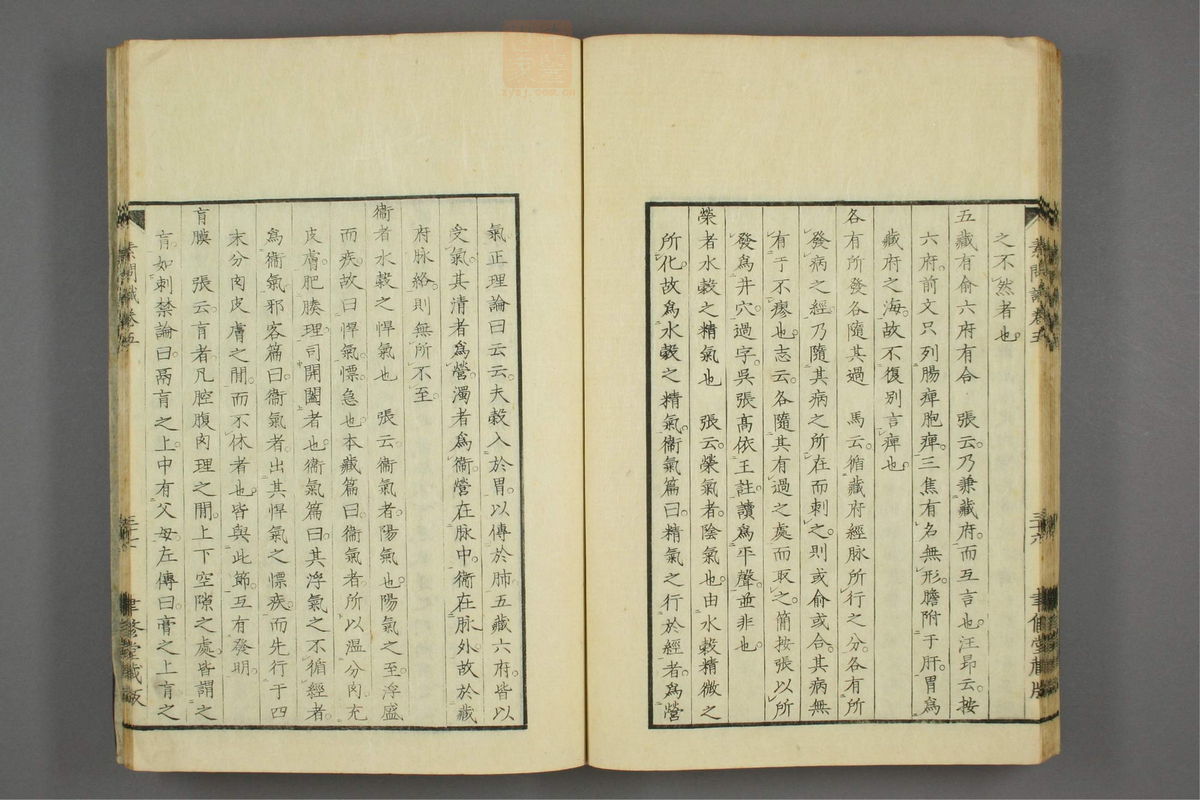 之不然者也
五藏有俞六府有合 張云乃兼藏府而互言也汪昂云按
六府前文只列腸痺胞痺三焦有名無形膽附于肝胃爲
藏府之海故不復別言痺也
各有所發各隨其過 馬云循藏府經脉所行之分各有所
發病之經乃隨其病之所在而刺之則或俞或合其病無
有于不瘳也志云各隨其有過之處而取之簡按張以所
發爲井穴過字吳張高依王註讀爲平聲並非也
榮者水穀之精氣也 張云榮氣者陰氣也由水穀精微之
所化故爲水穀之精氣衞氣篇曰精氣之行於經者爲營
素問識卷五
三十六
聿修堂藏版
氣正理論曰云云夫穀入於胃以傳於肺五藏六府皆以
受氣其清者爲營濁者爲衞營在脉中衞在脉外故於藏
府脉絡則無所不至
衞者水穀之悍氣也 張云衞氣者陽氣也陽氣之至浮盛
而疾故曰悍氣慓急也本藏篇曰衞氣者所以溫分肉充
皮膚肥腠理司開闔者也衞氣篇曰其浮氣之不循經者
爲衞氣邪客篇曰衞氣者出其悍氣之慓疾而先行于四
末分肉皮膚之間而不休者也皆與此節互有發明
肓膜 張云肓者凡腔腹肉理之間上下空隙之處皆謂之
肓如刺禁論曰鬲肓之上中有父母左傳曰膏之上肓之
素問識卷五
聿修堂藏版